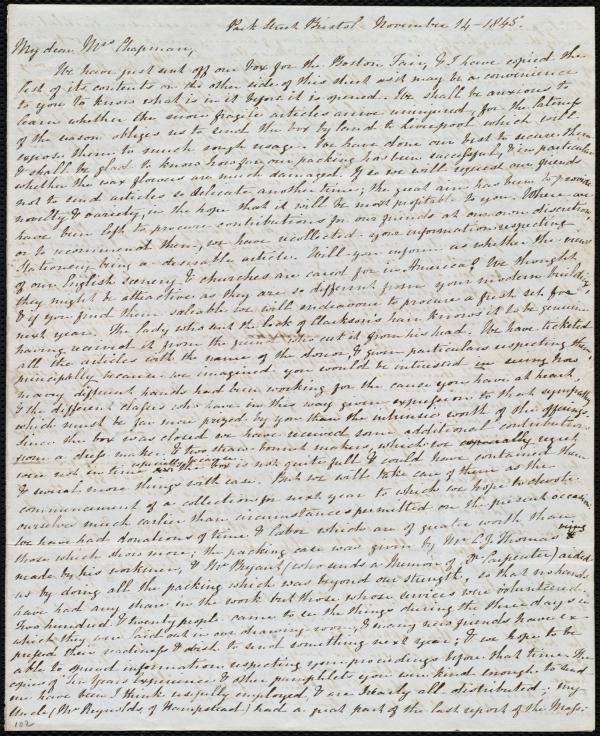 Park Street Bristol November 14 - 1845.
My dear Mrs Chapman,
We have just sent off our box for the Boston Fair, & I have copied the
list of its contents on the other side of this sheet as it may be a convenience
to you to know what is in it before it is opened. We shall be anxious to
learn whether the more fragile articles arrive uninjured, for the lateness
of the season obliges us to send the box by land to Liverpool which will
expose them to much rough usage. We have done our best to secure them
& shall be glad to know how far our packing has been successful, & in particular
whether the wax flowers are much damaged. If so we will request our friends
not to send articles so delicate another time; the great aim has been to provide
novelty & variety, in the hope that it will be most profitable to you. Where we
have been left to procure contributions for our friends at our own discretion
or to recommend them, we have recollected your information respecting
Stationery being a desirable article. Will you inform us whether the views
of our English scenery & churches are cared for in America? We thought
they might be attractive as they are so different from your modern buildings,
& if you find them saleable we will endeavour to procure a fresh set for
next year. The lady who sent the lock of Clarkson's hair knows it to be genuine
having received it from the person who cut it from his head. We have ticketed
all the articles with the name of the donor, & given particulars respecting them
principally because we imagined you would be interested in seeing how
many different hands had been working for the cause you have at heart
& the different classes who have in this way given expression to that sympathy
which must be far more prized by you than the intrinsic worth of the offerings.
Since the box was closed we have received some additional contributions
from a dress maker & two straw bonnet makers which we especially regret
were not in time especially because the box is not quite full & could have contained them
& several more things with ease. But we will take care of them as the
commencement of a collection for next year to which we hope to devote
ourselves much earlier than circumstances permitted on the present occasion.
We have had donations of time & labor which are of greater worth than
those which show more; the packing case was given by Mr L. J. Thomas being
made by his workmen, & Mr Bryant (who sends a Memoir of Dr Carpenter) aided
us by doing all the packing which was beyond our strength, so that no hands
have had any share in the work but those whose services were volunteered.
Two hundred & twenty people came to see the things during the three days in
which they were laid out in our drawing room, & many new friends have ex-
pressed their readiness & wish to send something next year; & we hope to be
able to spread information respecting your proceedings before that time. The
copies of Ten Years Experience & other pamphlets you were kind enough to send
me have been I think usefully employed & are nearly all distributed; my
Uncle (Mr Reynolds, of Hampstead) had a great part of the last report of the Mass:
102